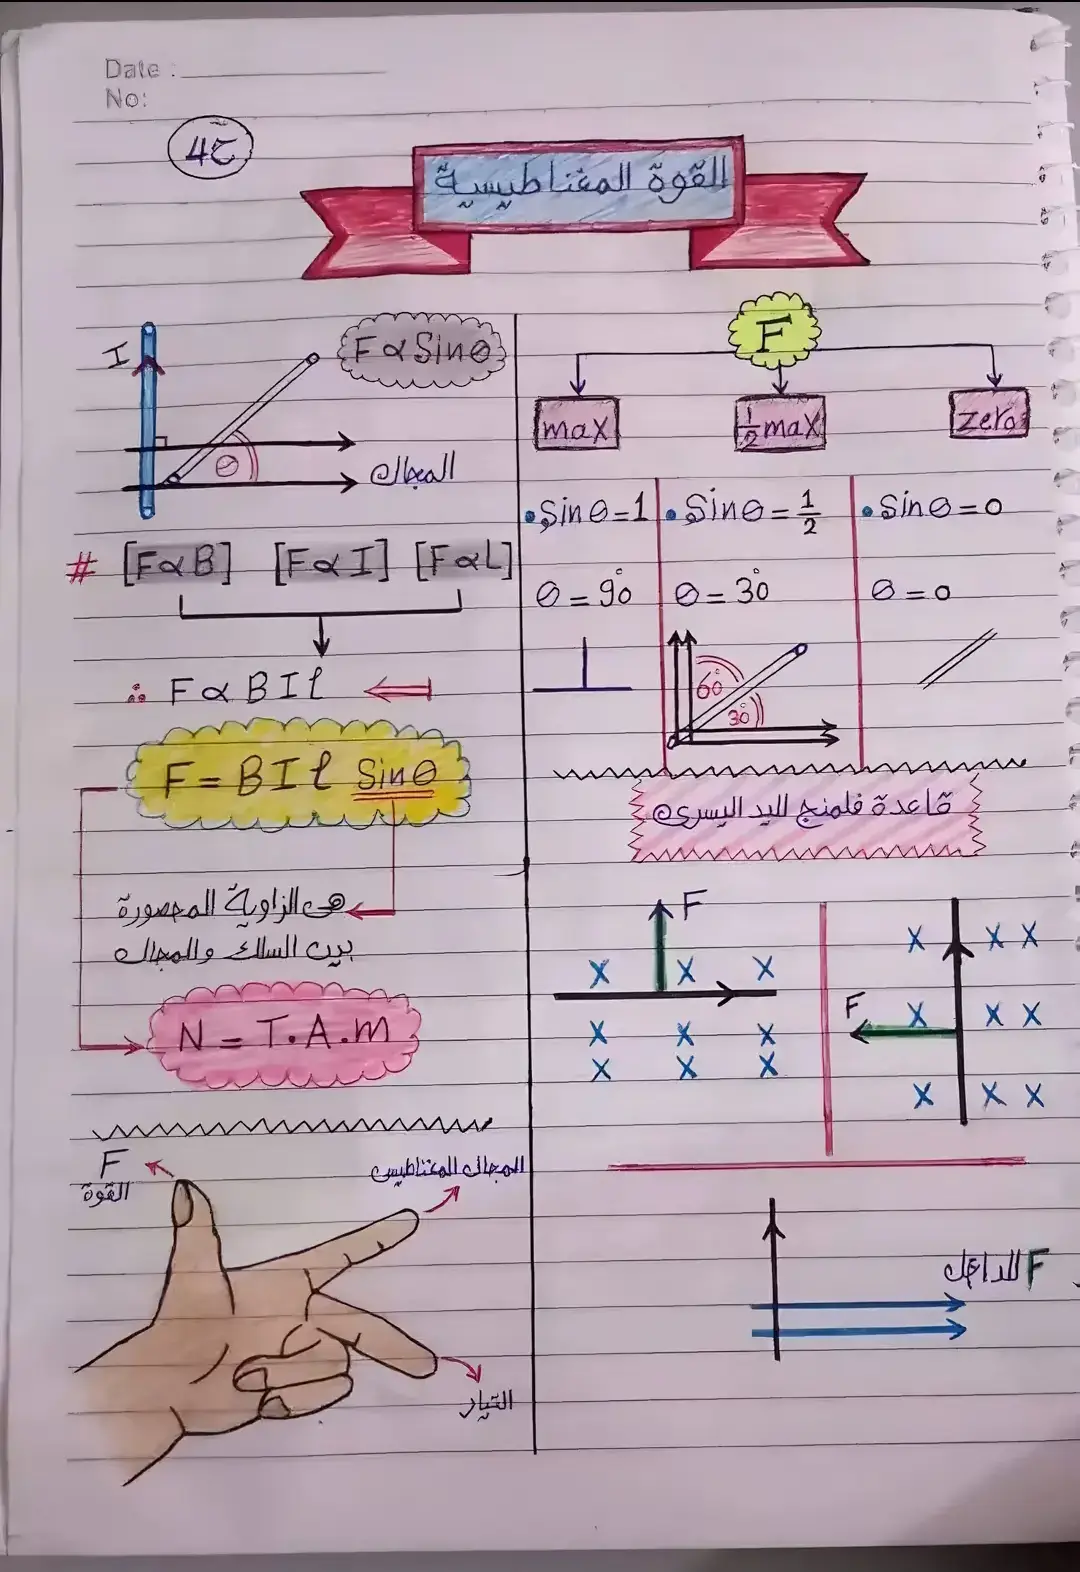 Date :
No:
ح4
القوة المغناطيسية
I
F α Sin θ
θ
المجال
# [F α B] [F α I] [F α L]
∴ F α B I ℓ
F = B I ℓ Sin θ
هى الزاوية المحصورة
بين السلك والمجال
N = T.A.m
F
القوة
المجال المغناطيسى
التيار
F
max
1/2 max
zero
• Sin θ = 1
θ = 90°
• Sin θ = 1/2
θ = 30°
60°
30°
• Sin θ = 0
θ = 0
قاعدة فلمنج لليد اليسرى
F
X X X
X X X
X X X
X X X
F X X X
X X X
F للداخل